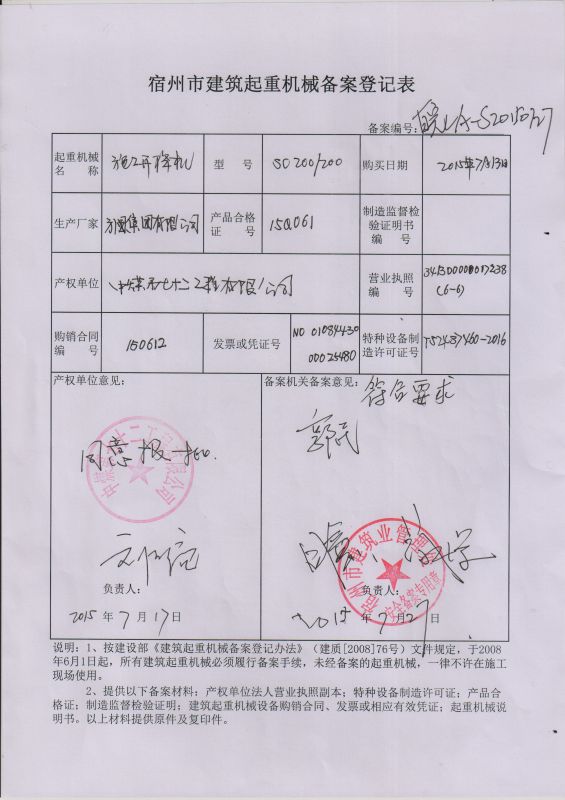 宿州市建筑起重机械备案登记表
备案编号:
起重机械名称 施工升降机 型号 SC200/200 购买日期 2015年7月13日
生产厂家 集团有限公司 产品合格证号 15Q061 制造监督检验证明书编号
产权单位 中煤第七十二工程有限公司 营业执照编号 (6-6)
购销合同编号 150612 发票或凭证号 NO 01084430 00025480 特种设备制造许可证号 TS2437460-2016
产权单位意见:
同意报批.
负责人:
2015 年 7 月 17 日
备案机关备案意见:
符合要求
宿州市建筑业管理
安全备案专用章
负责人:
2015 年 7 月 27 日
说明:1、按建设部《建筑起重机械备案登记办法》(建质[2008]76号)文件规定,于2008
年6月1日起,所有建筑起重机械必须履行备案手续,未经备案的起重机械,一律不许在施工
现场使用。
2、提供以下备案材料:产权单位法人营业执照副本;特种设备制造许可证;产品合
格证;制造监督检验证明;建筑起重机械设备购销合同、发票或相应有效凭证;起重机械说
明书。以上材料提供原件及复印件。